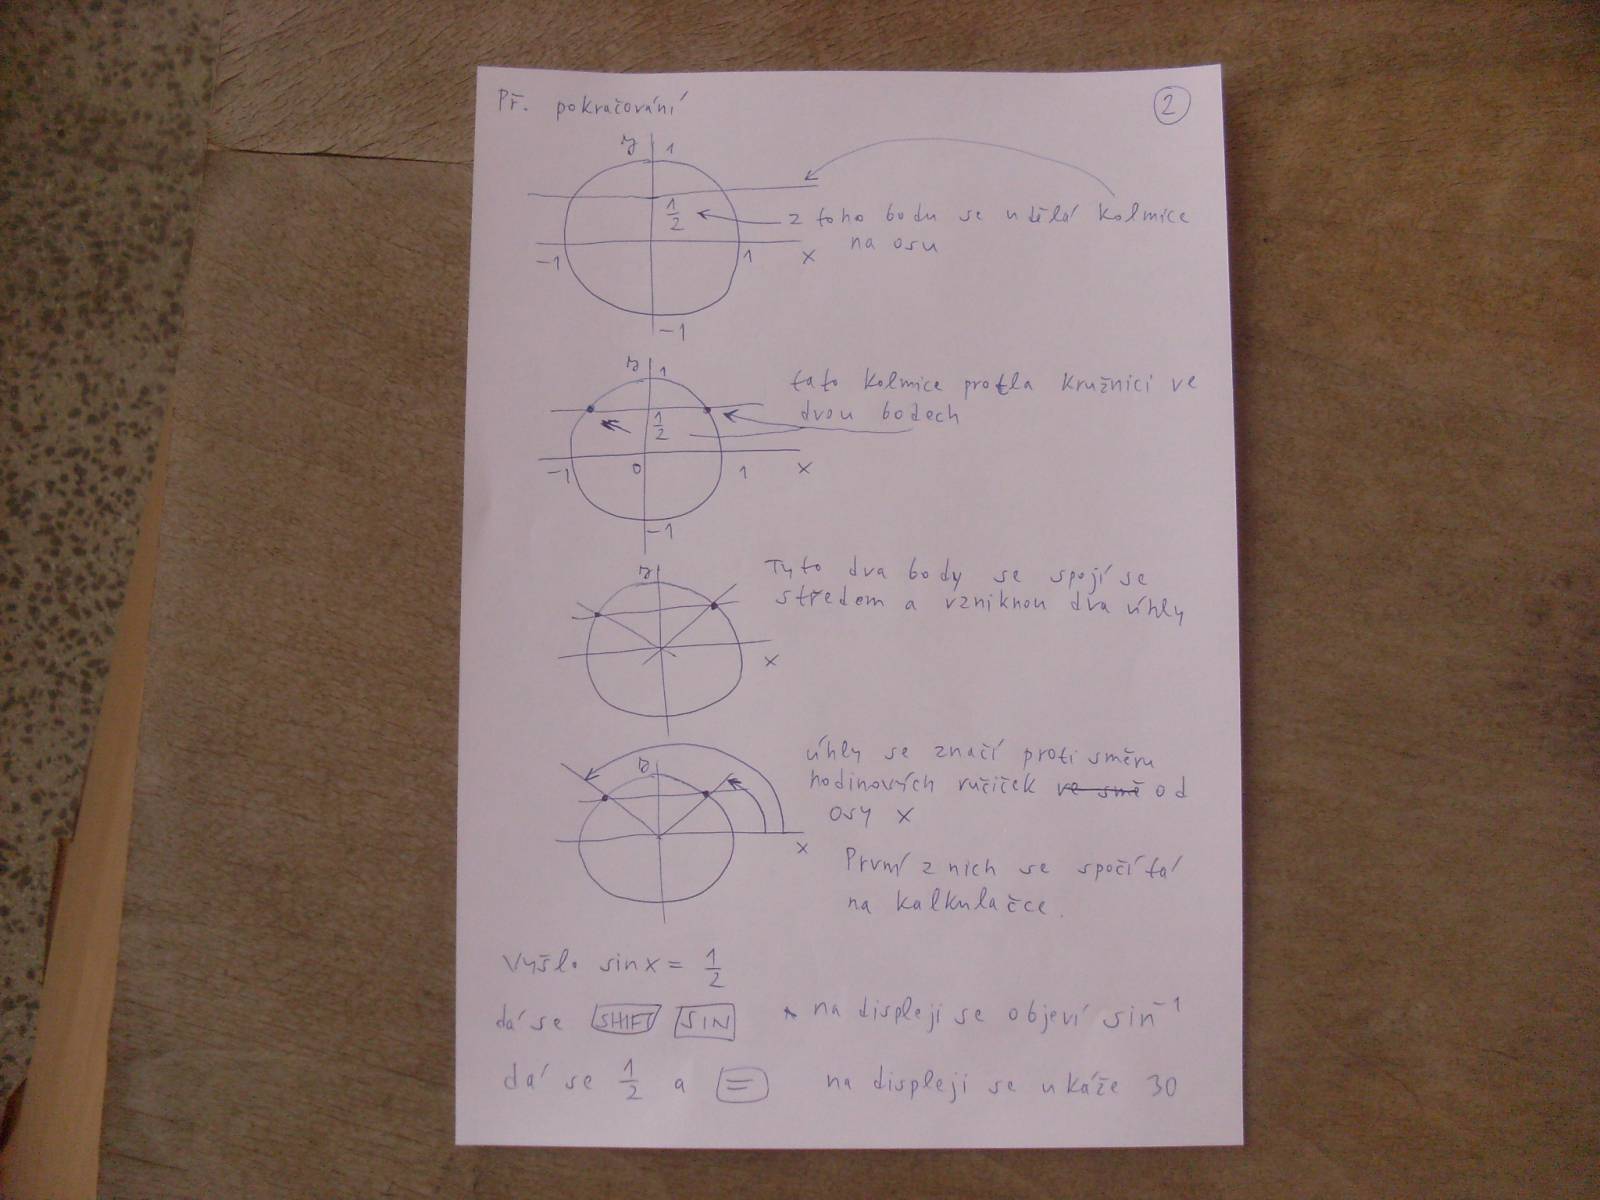 Př. pokračování
2
y 1
1/2
z toho bodu se udělá kolmice
na osu
-1 1 x
-1
y 1
tato kolmice protla kružnici ve
dvou bodech
1/2
-1 0 1 x
-1
y
Tyto dva body se spojí se
středem a vzniknou dva úhly
x
y
úhly se značí proti směru
hodinových ručiček ve smě od
osy x
x
První z nich se spočítá
na kalkulačce.
Vyšlo sin x = 1/2
dá se SHIFT SIN na displeji se objeví sin⁻¹
dá se 1/2 a = na displeji se ukáže 30